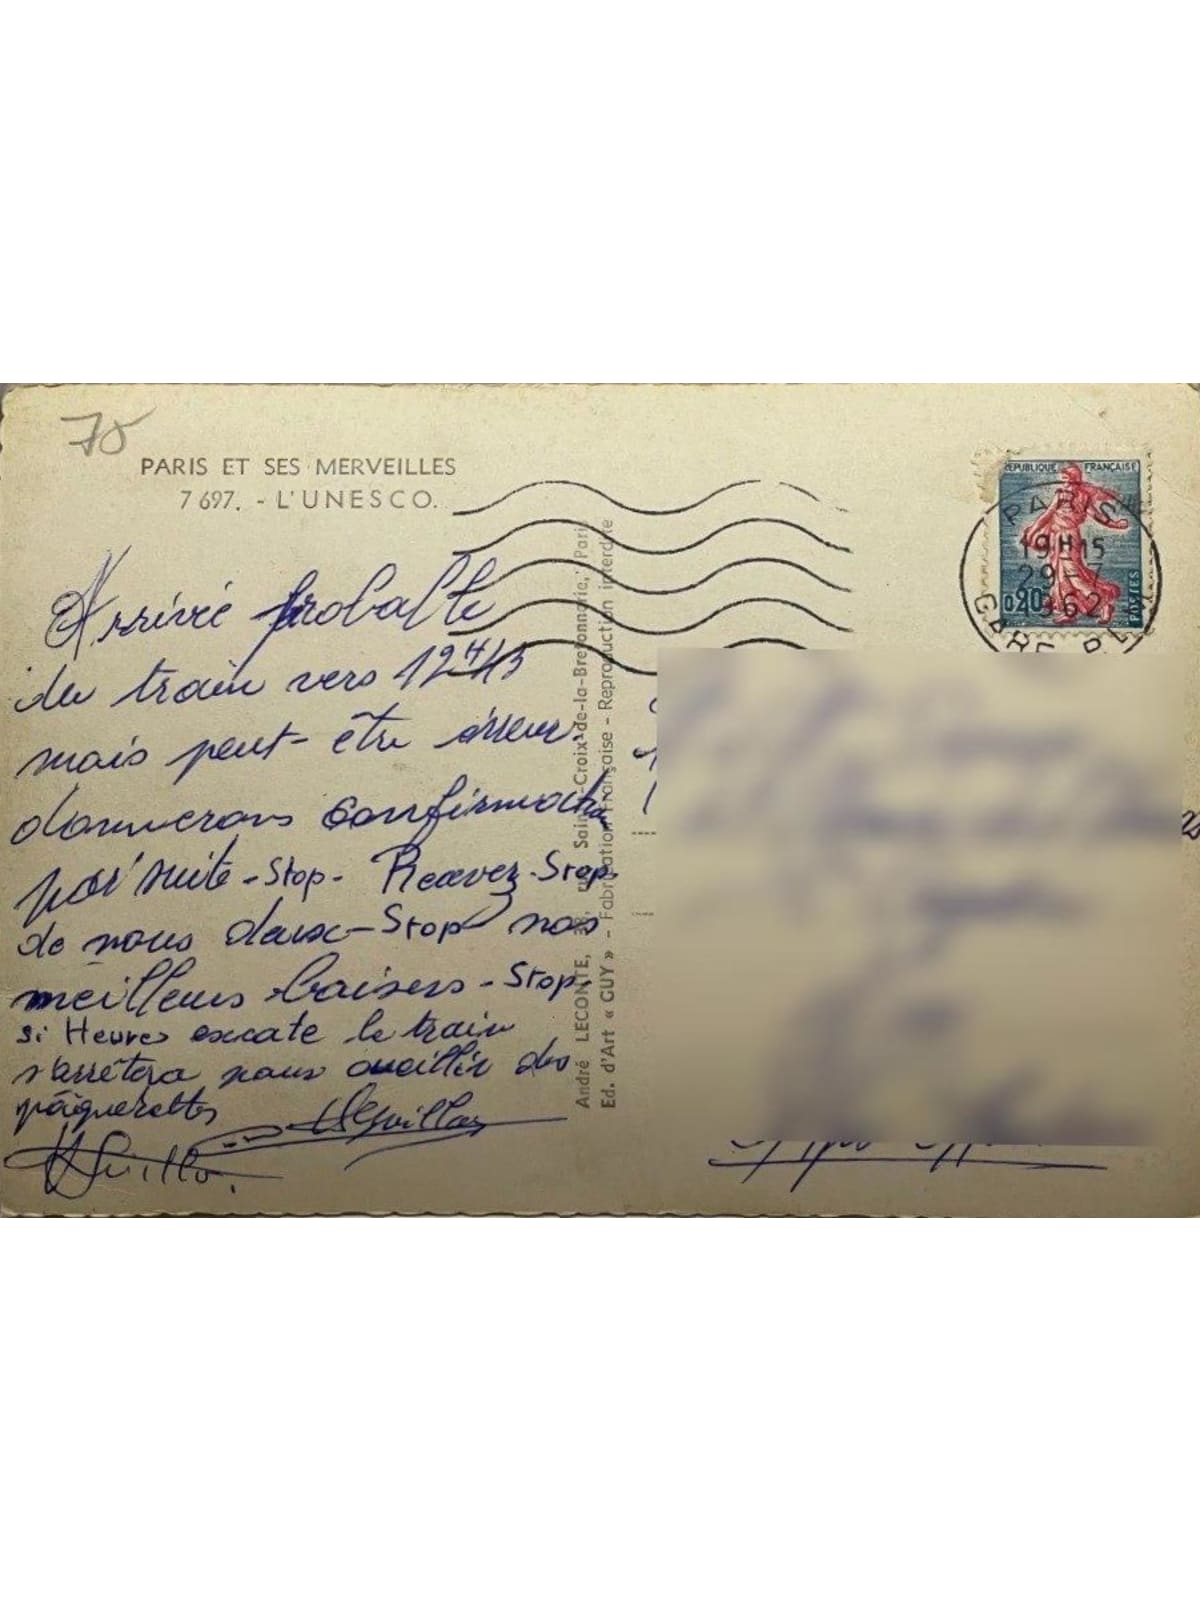 70
PARIS ET SES MERVEILLES
7 697. - L'UNESCO.
Arrivé probable
du train vers 12H13
mais peut-être érreur
donnerons confirmation
par suite - Stop - Recevez - Stop.
de nous deux - Stop nos
meilleurs baisers - Stop.
si Heures exate le train
s'arrêtera pour cueillir des
pâquerettes
André LECONTE, 38, rue Sainte-Croix-de-la-Bretonnerie, Paris
Ed. d'Art « GUY » - Fabrication Française - Reproduction interdite
REPUBLIQUE FRANÇAISE
0,20
POSTES
PARIS
19H15
29-7
1962
GARE